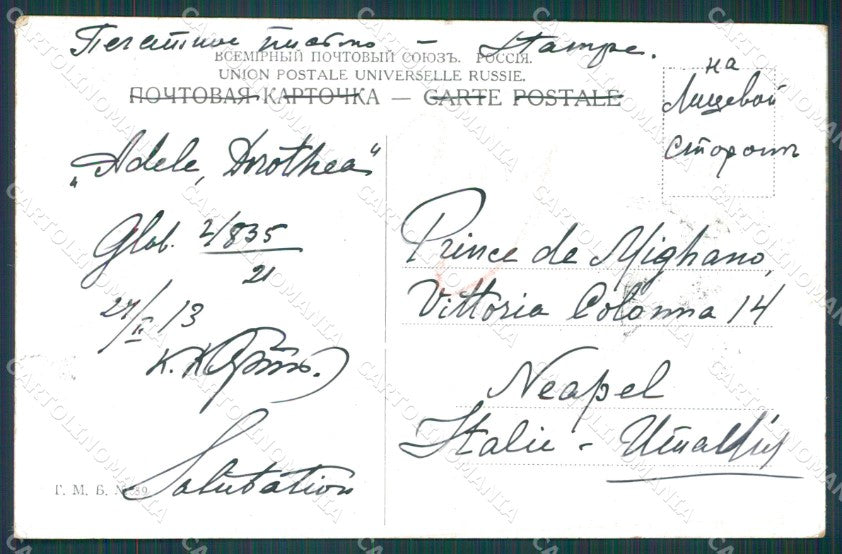 Печатное письмо – Stampe.
ВСЕМІРНЫЙ ПОЧТОВЫЙ СОЮЗЪ. РОССІЯ.
UNION POSTALE UNIVERSELLE RUSSIE.
ПОЧТОВАЯ КАРТОЧКА — CARTE POSTALE
на
Лицевой
сторонѣ
"Adele, Dorothea"
Glob. 2/835
21
27/II 13
Salutation
Г. М. Б. № 39
Prince de Mighano,
Vittoria Colonna 14
Neapel
Italie -
CARTOLINOMANIA